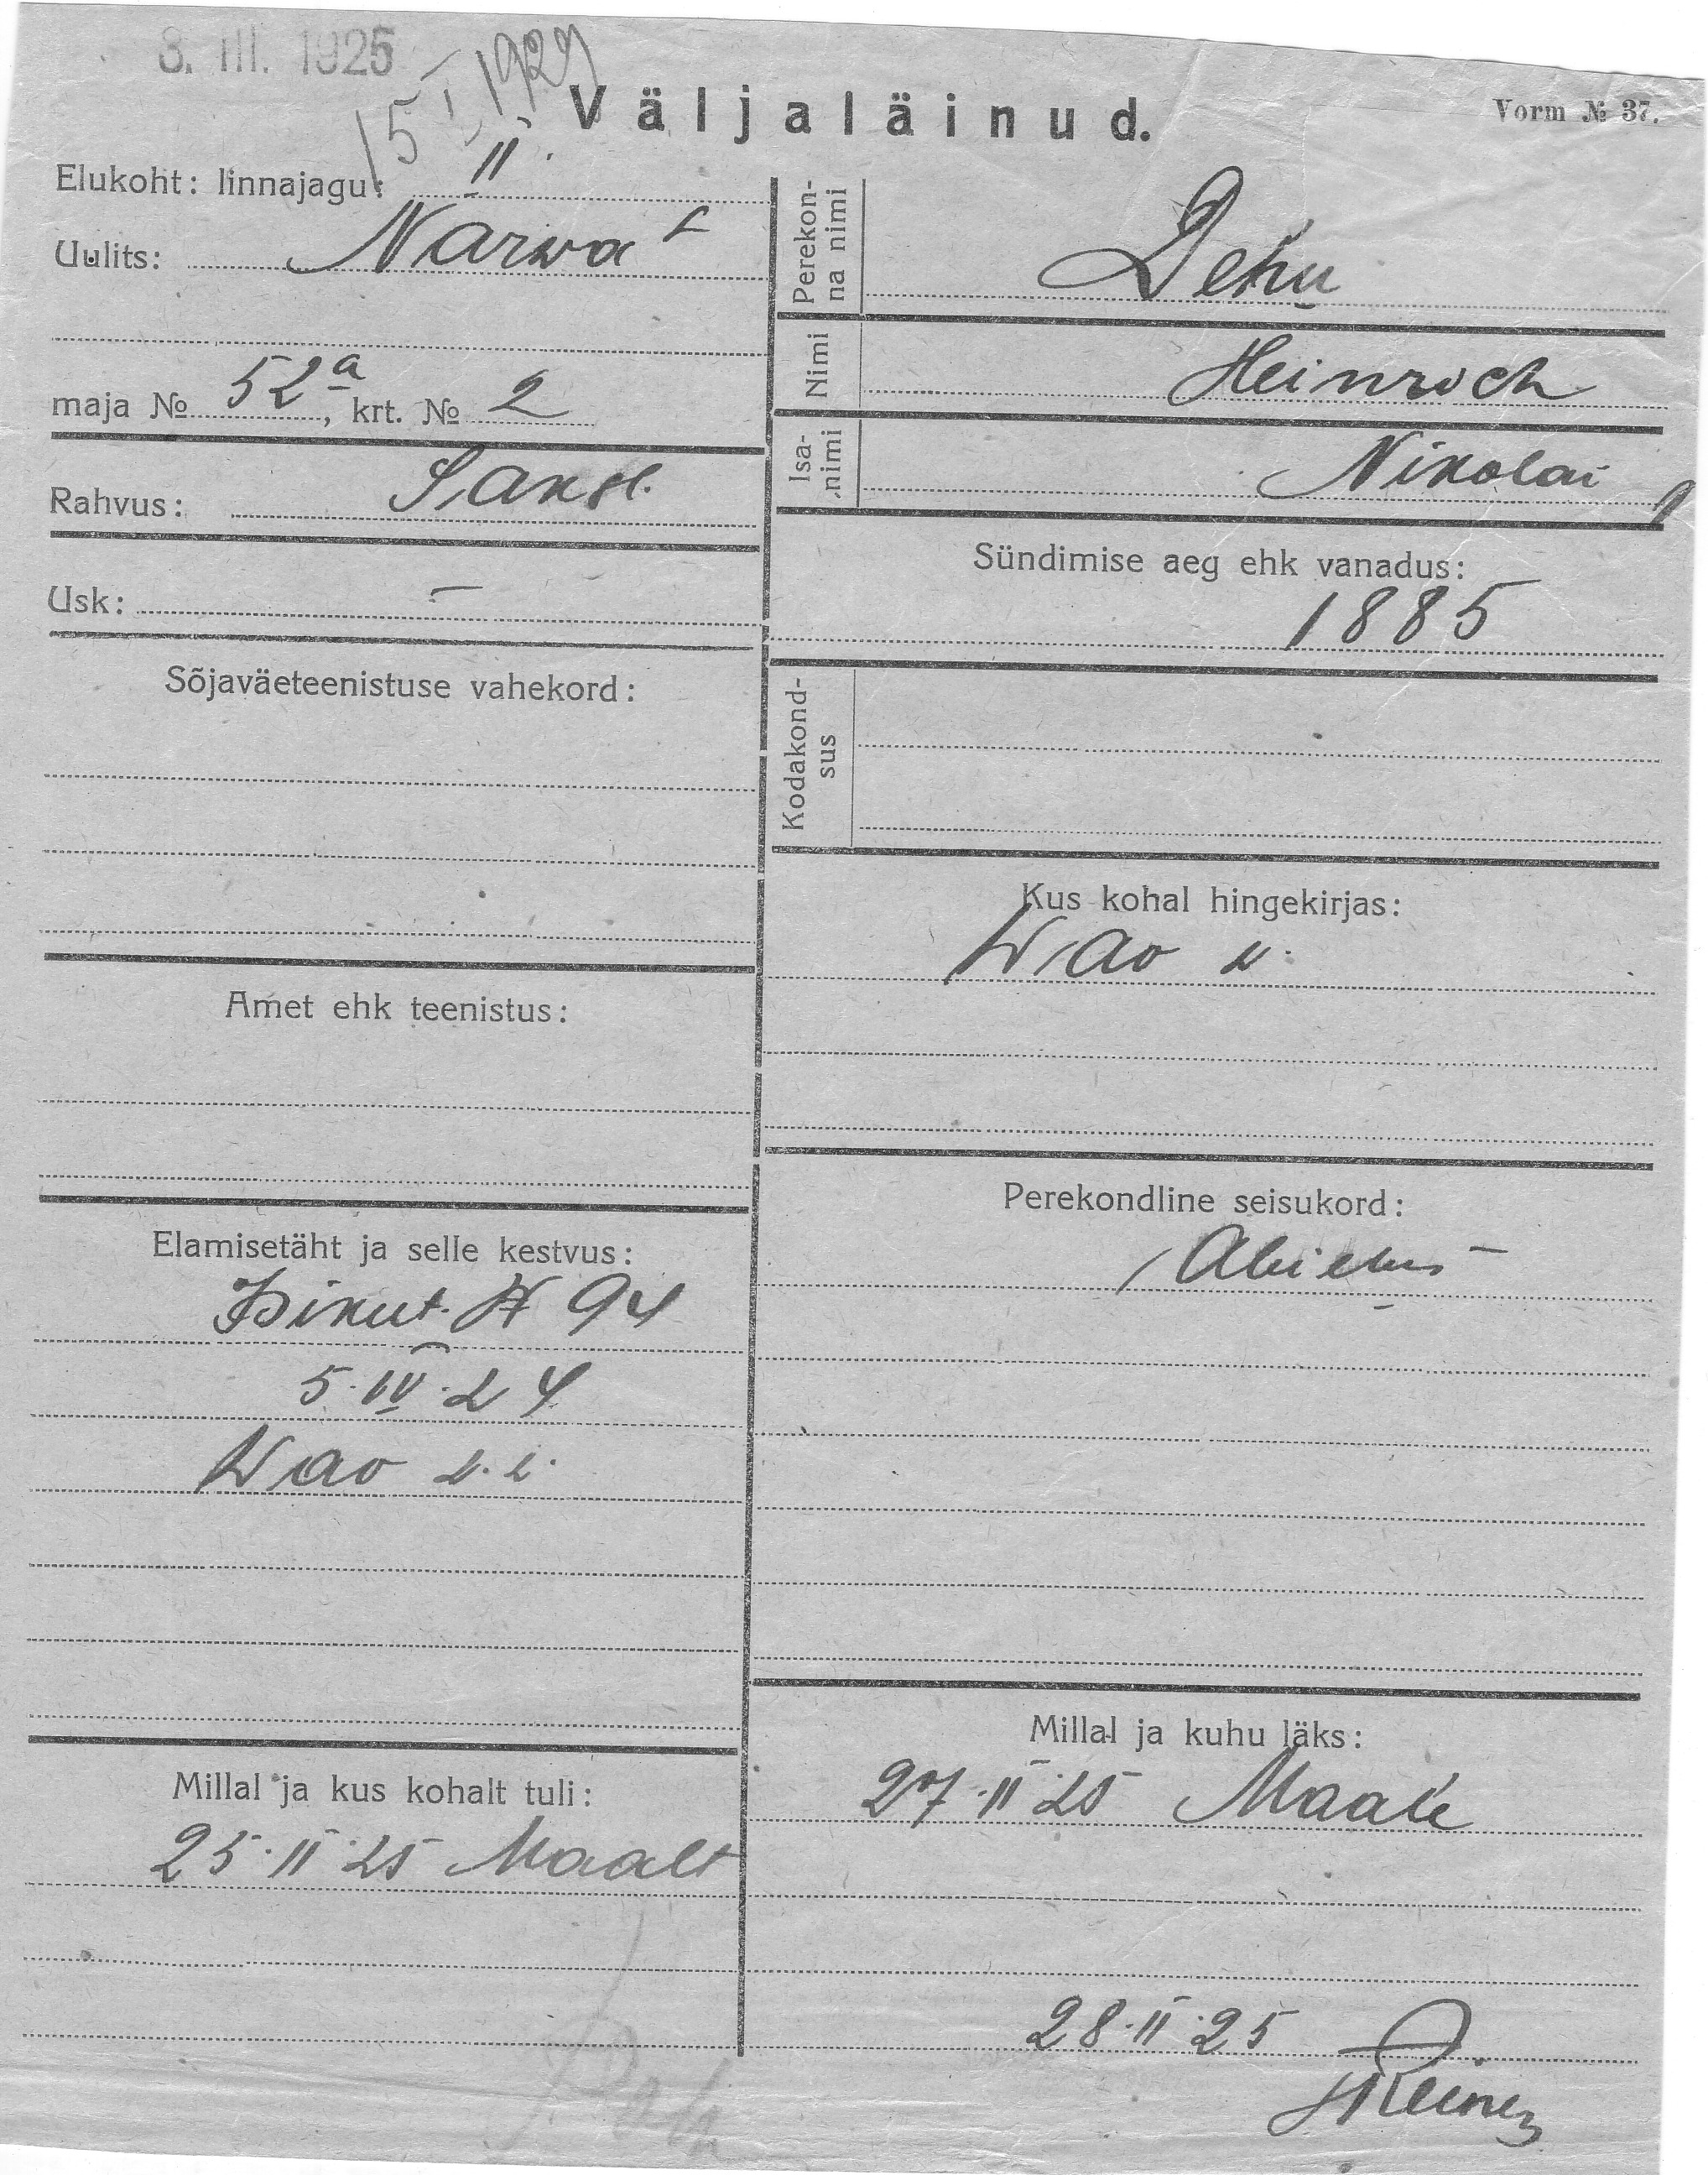 3. III. 1925
15 I 1929
Väljaläinud.
Vorm № 37.
Elukoht: linnajagu: II
Uulits: Narwa t
maja № 52a, krt. № 2
Rahvus: Saksl.
Usk: —
Sõjaväeteenistuse vahekord:
Amet ehk teenistus:
Elamisetäht ja selle kestvus:
Isikut. № 94
5.IV.24
Wao v.v.
Millal ja kus kohalt tuli:
25.II.25 Maalt
Perekon-
na nimi
Dehn
Nimi
Heinrich
Isa-
nimi
Nikolai
Sündimise aeg ehk vanadus:
1885
Kodakond-
sus
Kus kohal hingekirjas:
Wao v.
Perekondline seisukord:
Abielus
Millal ja kuhu läks:
27.II.25 Maale
28.II.25